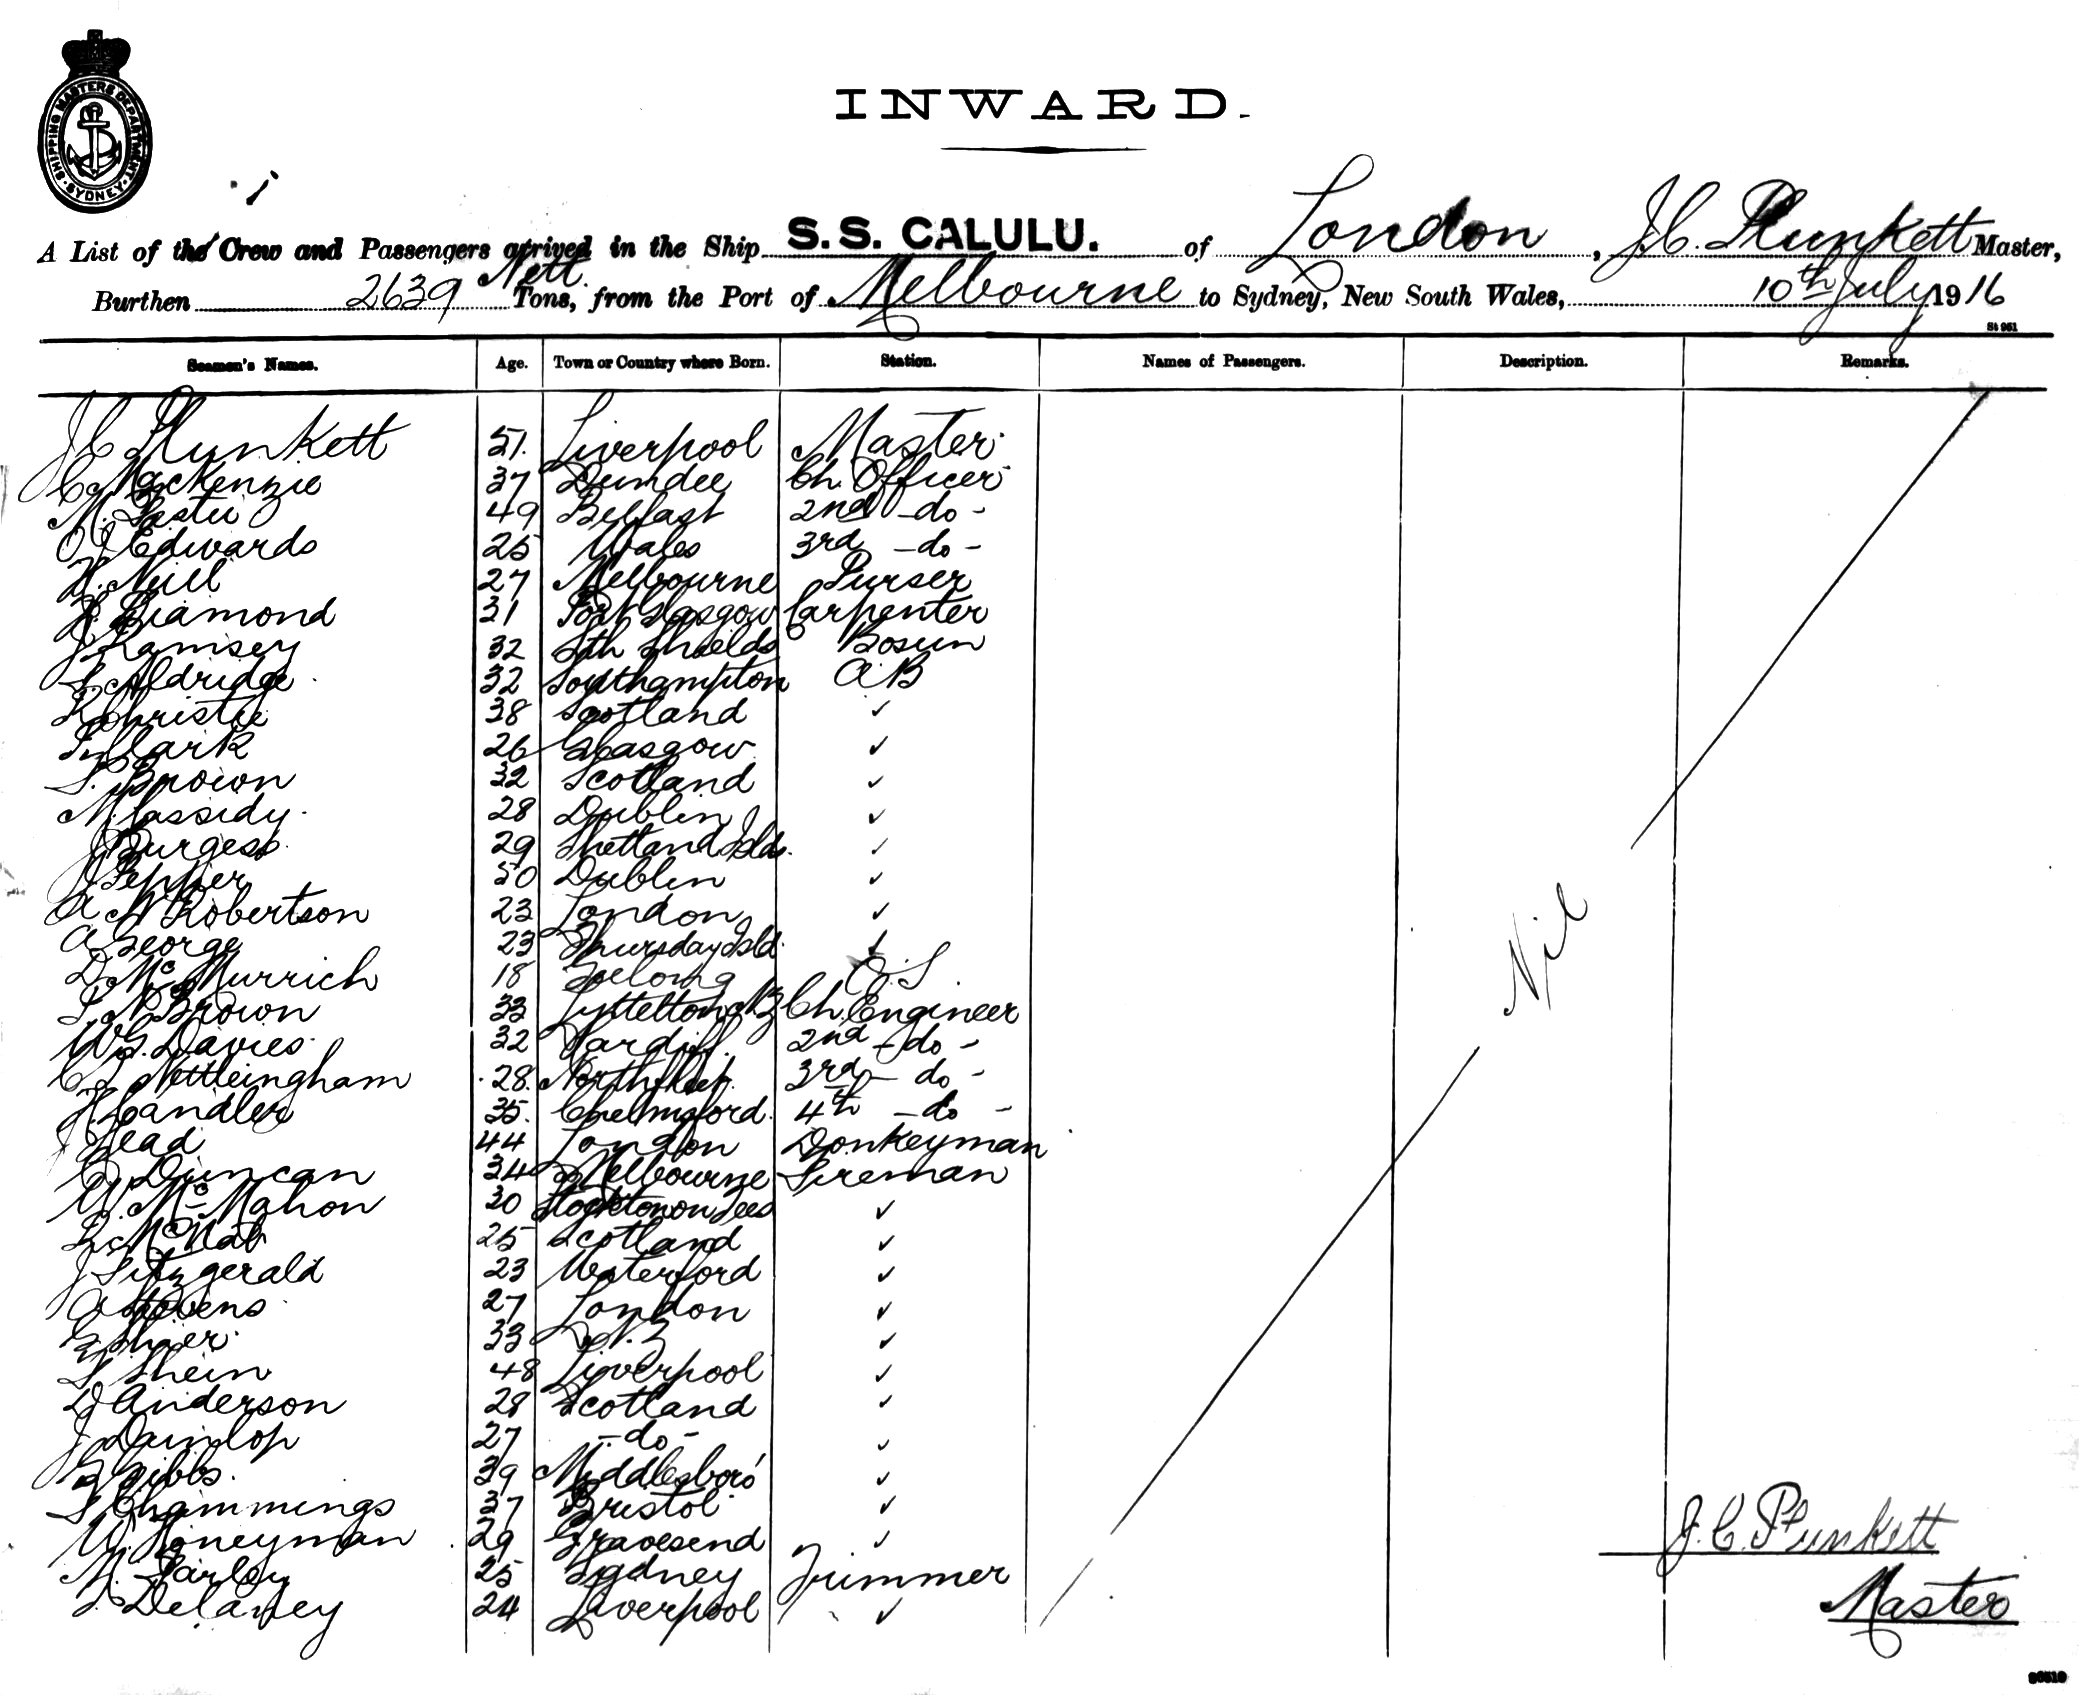 SHIPPING MASTERS DEPARTMENT. SYDNEY
INWARD.
A List of the Crew and Passengers arrived in the Ship S.S. CALULU. of London, J.C. Plunkett Master,
Burthen 2639 Nett Tons, from the Port of Melbourne to Sydney, New South Wales, 10th July 1916
St 961
Seamen's Names. Age. Town or Country where Born. Station. Names of Passengers. Description. Remarks.
J C Plunkett 51. Liverpool Master
C Mackenzie 37 Dundee Ch. Officer
M. 49 Belfast 2nd -do-
O J Edwards 25 Wales 3rd -do-
Neill 27 Melbourne Purser
Diamond 31 Port Glasgow Carpenter
J Ramsey 32 Sth Shields Bosun
S Aldridge 32 Southampton A.B
R Christie 38 Scotland ✓
Clark 26 Glasgow ✓
S. Brown 32 Scotland ✓
M Cassidy 28 Dublin ✓
J Burgess 29 Shetland Islds. ✓
J Pepper 50 Dublin ✓
A W Robertson 23 London ✓
A George 23 Thursday Isld. ✓
D McMurrich 18 Geelong O.S.
S N Brown 33 Lyttelton NZ Ch. Engineer
W G. Davies 32 Cardiff. 2nd -do-
C J Nettleingham 28. Northfleet 3rd - do -
H Candler 35. Chelmsford. 4th - do -
J Head 44 London Donkeyman
C Duncan 34 Melbourne Fireman
W. McMahon 30 Stockton on Tees ✓
McNab 25 Scotland ✓
J Fitzgerald 23 Waterford ✓
A Stevens 27 London ✓
33 N.Z ✓
S Shein 48 Liverpool ✓
D J Anderson 28 Scotland ✓
J Dunlop 27 -do- ✓
G Gibbs. 39 Middlesboro' ✓
S Chammings 37 Bristol ✓
W. Honeyman 29 Gravesend ✓
M. Farley 25 Sydney Trimmer
Delaney 24 Liverpool ✓
Nil
J.C. Plunkett
Master